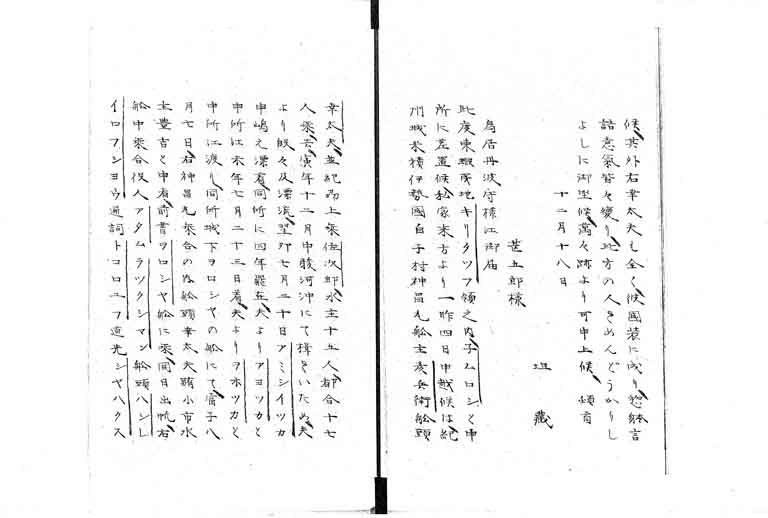 候其外右幸太夫も全く彼國装に成り惣躰言
語意氣皆々變り此方の人をめんどうかりし
よしに御坐候萬々跡より可申上候 頓首
十二月十八日
垣藏
甚五郎様
鳥居丹波守様江御届
此度東蝦夷地キリタツフ領之内子ムロシと申
所に差置候私家来方より一昨四日申越候は紀
州城米積伊勢國白子村神昌丸船主彦兵衛船頭
幸太夫並紀州上乗作次郎水主十五人都合十七
人乗去寅年十二月中駿河沖にて檝をいため夫
より段々及漂流翌卯七月二十日アミシイツカ
申嶋え漂着同所に四年罷在夫よりアヨツカと
申所江未年七月二十三日着夫よりヲホツカと
申所江渡り同所城下ヲロシヤの船にて當子八
月七日右神昌丸乗合の内船頭幸太夫賄小市水
主豊吉と申者前書ヲロシヤ船に乗同日出帆右
船中乗合役人アタムラツクシマン船頭ハシレ
イロフンヨウ通詞トコロユフ道光シヤハクス